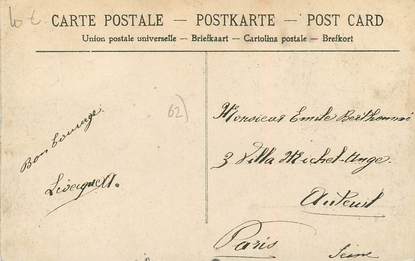 CARTE POSTALE — POSTKARTE — POST CARD
Union postale universelle — Briefkaart — Cartolina postale — Brefkort
62)
Bon Courage
Monsieur Emile
3 Villa Michel-Ange
Auteuil
Paris
Seine